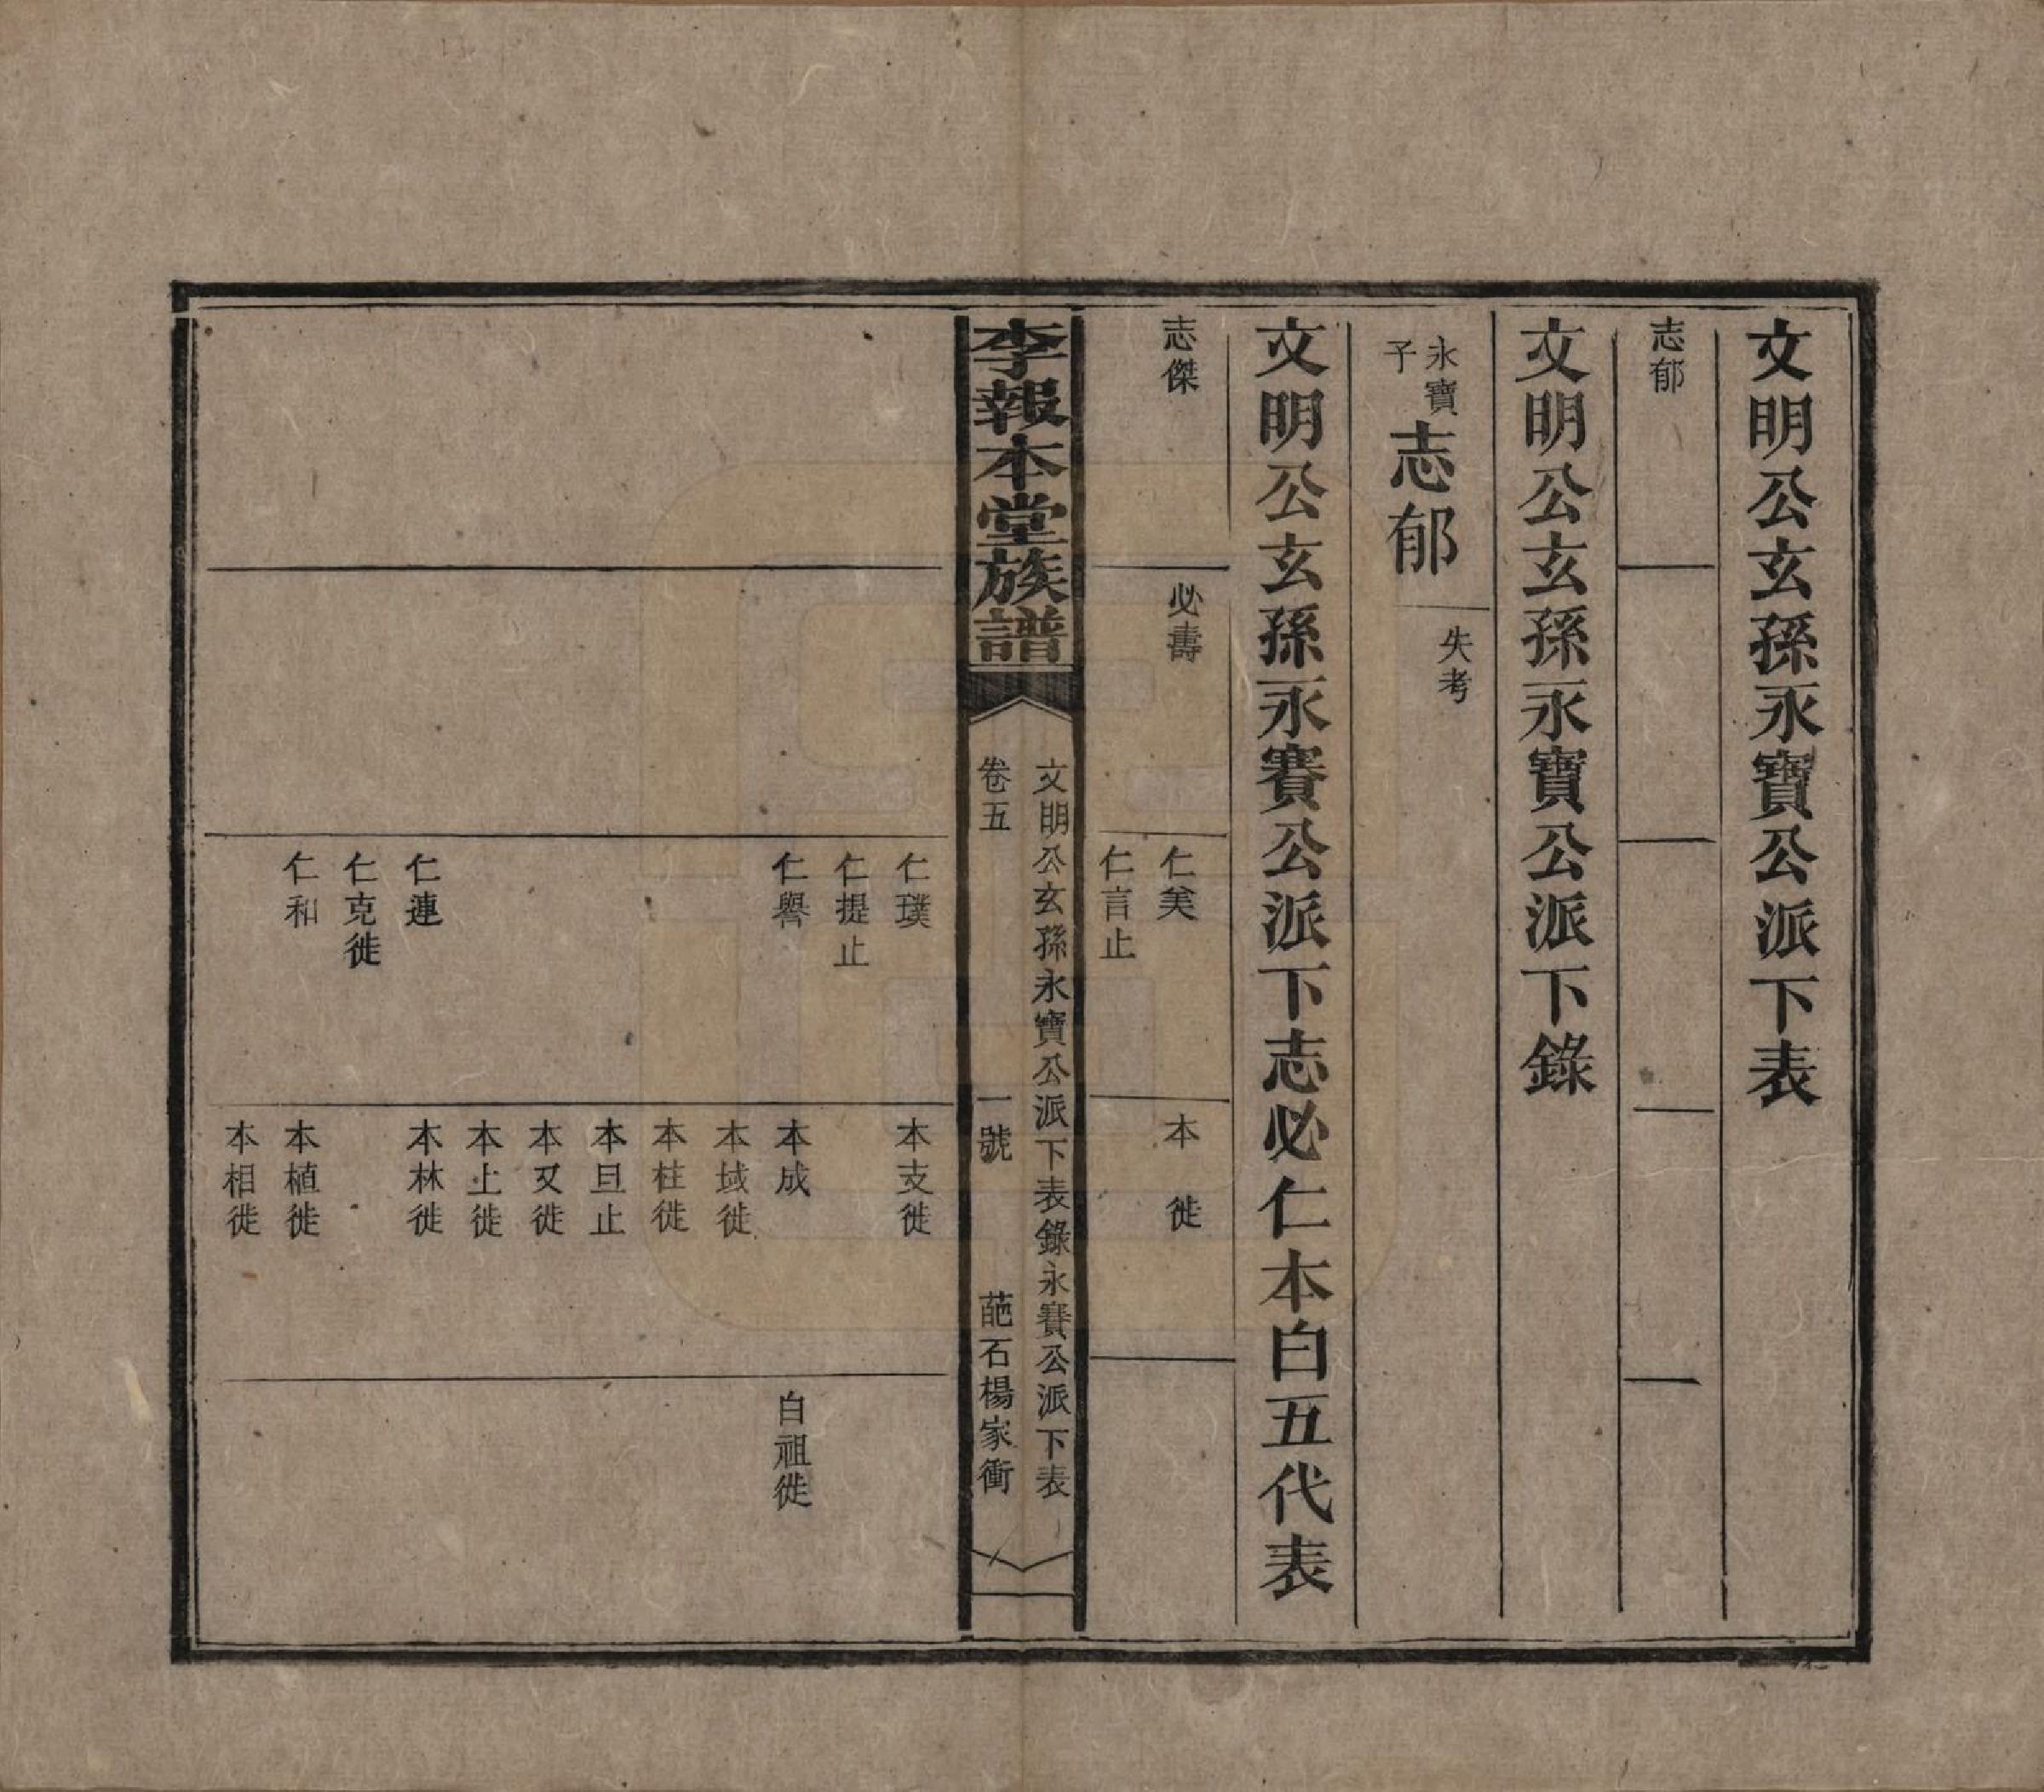 文明公玄孫永寶公派下表
志郁
文明公玄孫永寶公派下錄
永寶
子
志郁
失考
文明公玄孫永賽公派下志必仁本白五代表
志傑
必壽
仁美
本　徙
仁言止
李報本堂族譜
文明公玄孫永寶公派下表錄永賽公派下表
卷五
一號
葩石楊家衝
仁璞
本支徙
仁提止
仁譽
本成
白祖徙
本域徙
本柱徙
本旦止
本又徙
本上徙
仁連
本林徙
仁克徙
仁和
本植徙
本相徙